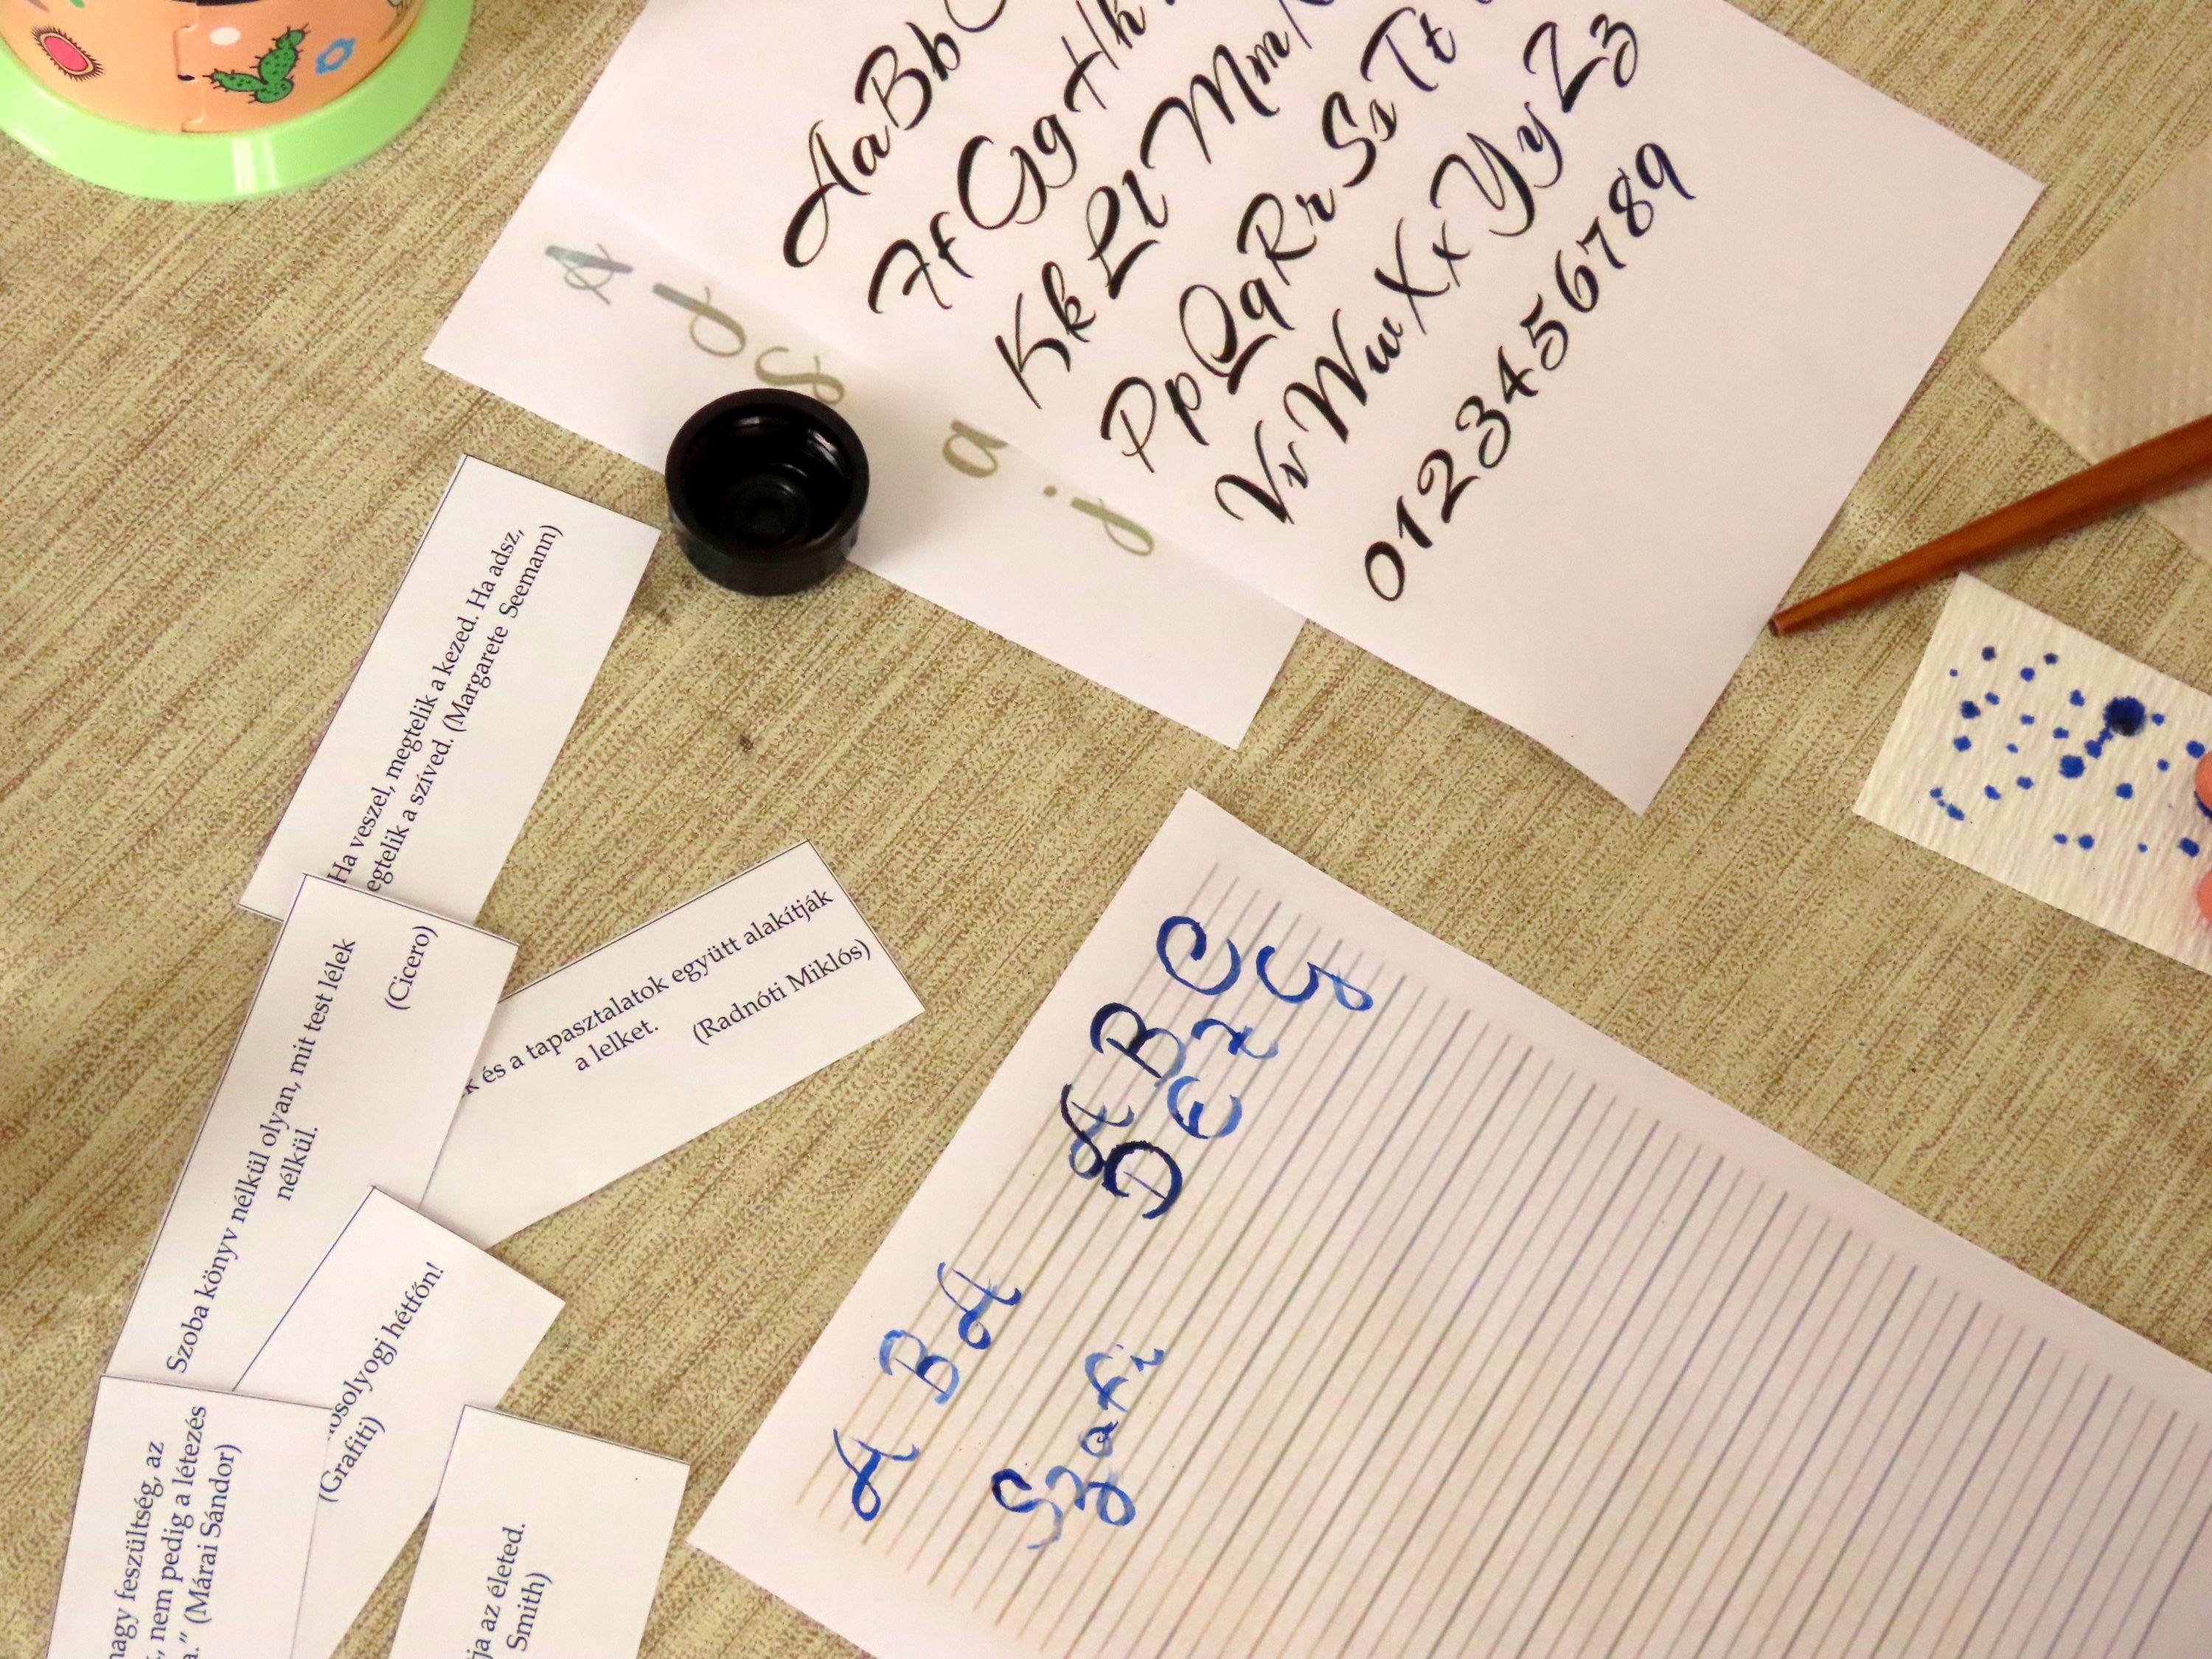 AaBbC
FfGgHh
KkLlMm
PpQqRrSsTt
VvWwXxYyZz
0123456789
Ha veszel, megtelik a kezed. Ha adsz,
egtelik a szíved. (Margarete Seemann)
és a tapasztalatok együtt alakítják
a lelket. (Radnóti Miklós)
Szoba könyv nélkül olyan, mit test lélek
nélkül. (Cicero)
osolyogj hétfőn!
(Grafiti)
nagy feszültség, az
, nem pedig a létezés
a." (Márai Sándor)
ja az életed.
Smith)
A B A A B C
D E
Szafi